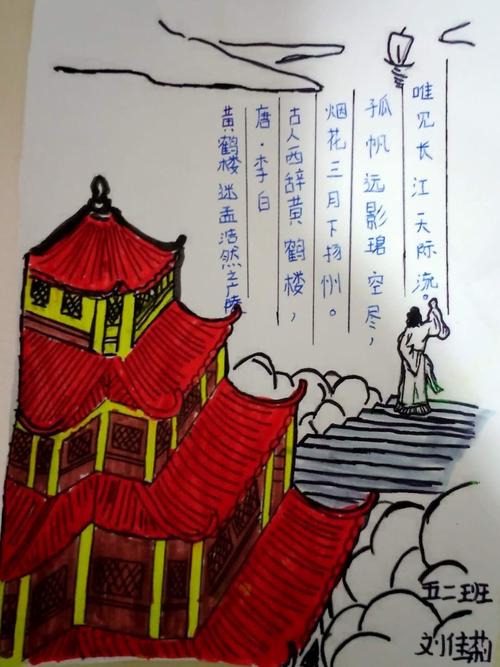 黄鹤楼送孟浩然之广陵
唐·李白
古人西辞黄鹤楼，
烟花三月下扬州。
孤帆远影碧空尽，
唯见长江天际流。
五二班
刘佳莉